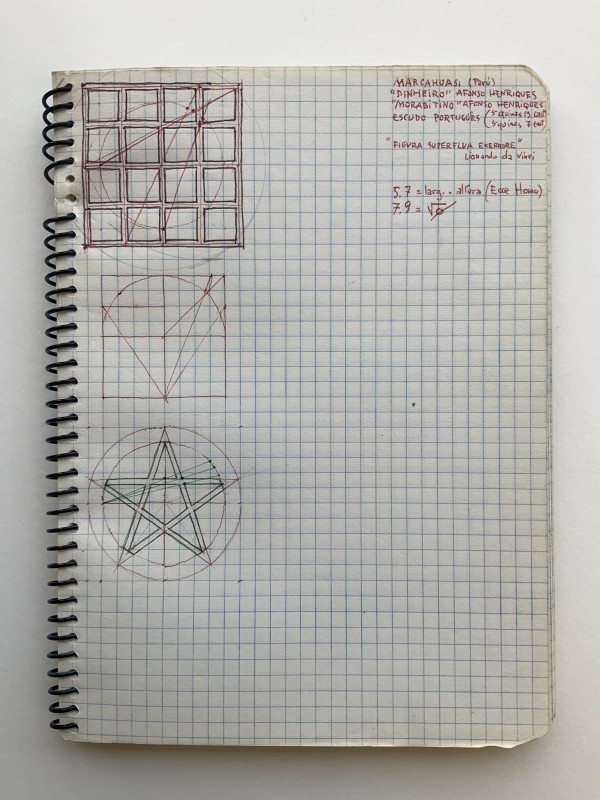 MARCAHUASI (Perú)
"DINHEIRO" AFONSO HENRIQUES
"MORABITINO" AFONSO HENRIQUES
ESCUDO PORTUGUÊS (5 quinas
5 quinas 7
"FIGURA SUPERFLUA EXERRORE"
Lionardo da Vinci
5.7 = larg. . altura (Ecce Homo)
7.9 =